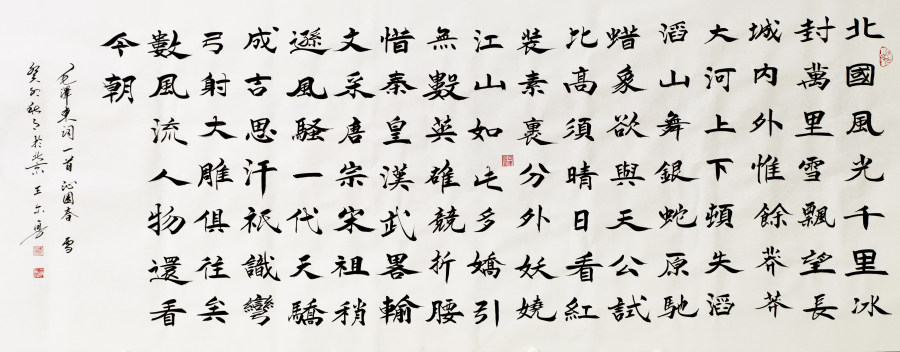 北國風光千里冰
封萬里雪飄望長
城内外惟餘莽莽
大河上下頓失滔
滔山舞銀蛇原馳
蜡象欲與天公試
比高須晴日看紅
裝素裹分外妖嬈
江山如此多嬌引
無數英雄競折腰
惜秦皇漢武畧輸
文采唐宗宋祖稍
遜風騷一代天驕
成吉思汗祇識彎
弓射大雕俱往矣
數風流人物還看
今朝
毛澤東詞一首 沁園春 雪
癸卯秋月於北京 王